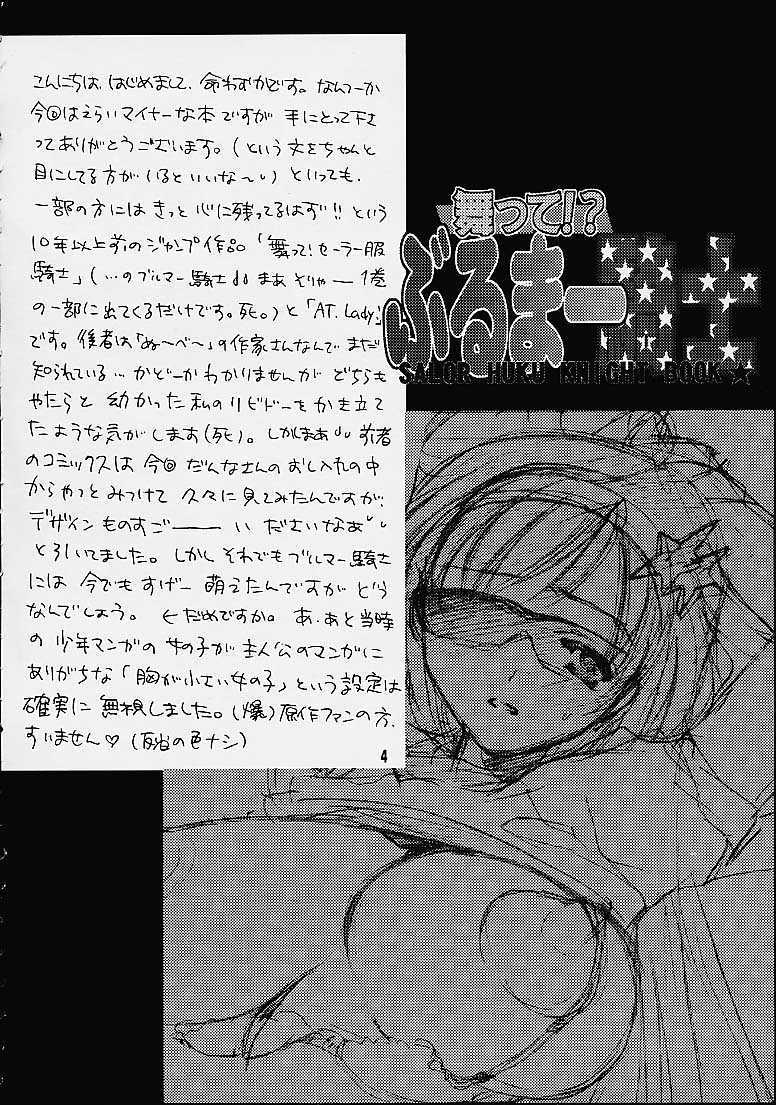 こんにちは、はじめまして、命わずかです。なんつーか
今回はえらいマイナーな本ですが 手にとって下さ
ってありがとうございます。(という文をちゃんと
目にしてる方がいるといいな〜) といっても、
一部の方には きっと 心に残ってるはず!! という
10年以上前のジャンプ作品「舞って!セーラー服
騎士」(…のブルマー騎士 まあ そりゃー 1巻
の一部に出てくるだけです。死。)と「AT. Lady」
です。後者は「ぬ〜べ〜」の作家さんなんで まだ
知られている…かどーかわかりませんが どちらも
やたらと 幼かった 私のリビドーをかき立て
たような気がします(死)。しかしまあ 前者
のコミックスは 今回 だんなさんの おし入れの中
からやっとみつけて 久々に見てみたんですが、
デザイン ものすごーーい ださいなあ
とろいてました。しかし それでもブルマー騎士
には 今でもすげー 萌えたんですが どう
なんでしょう。 ←だめですか。 あ、あと当時
の 少年マンガの 女の子が 主人公のマンガに
ありがちな「胸が小さい女の子」という設定は
確実に 無視しました。(爆) 原作ファンの方、
すいません♡ (反省の色ナシ)
4
舞って!?
ぶるまー騎士
SALOR HUKU KNIGHT BOOK★